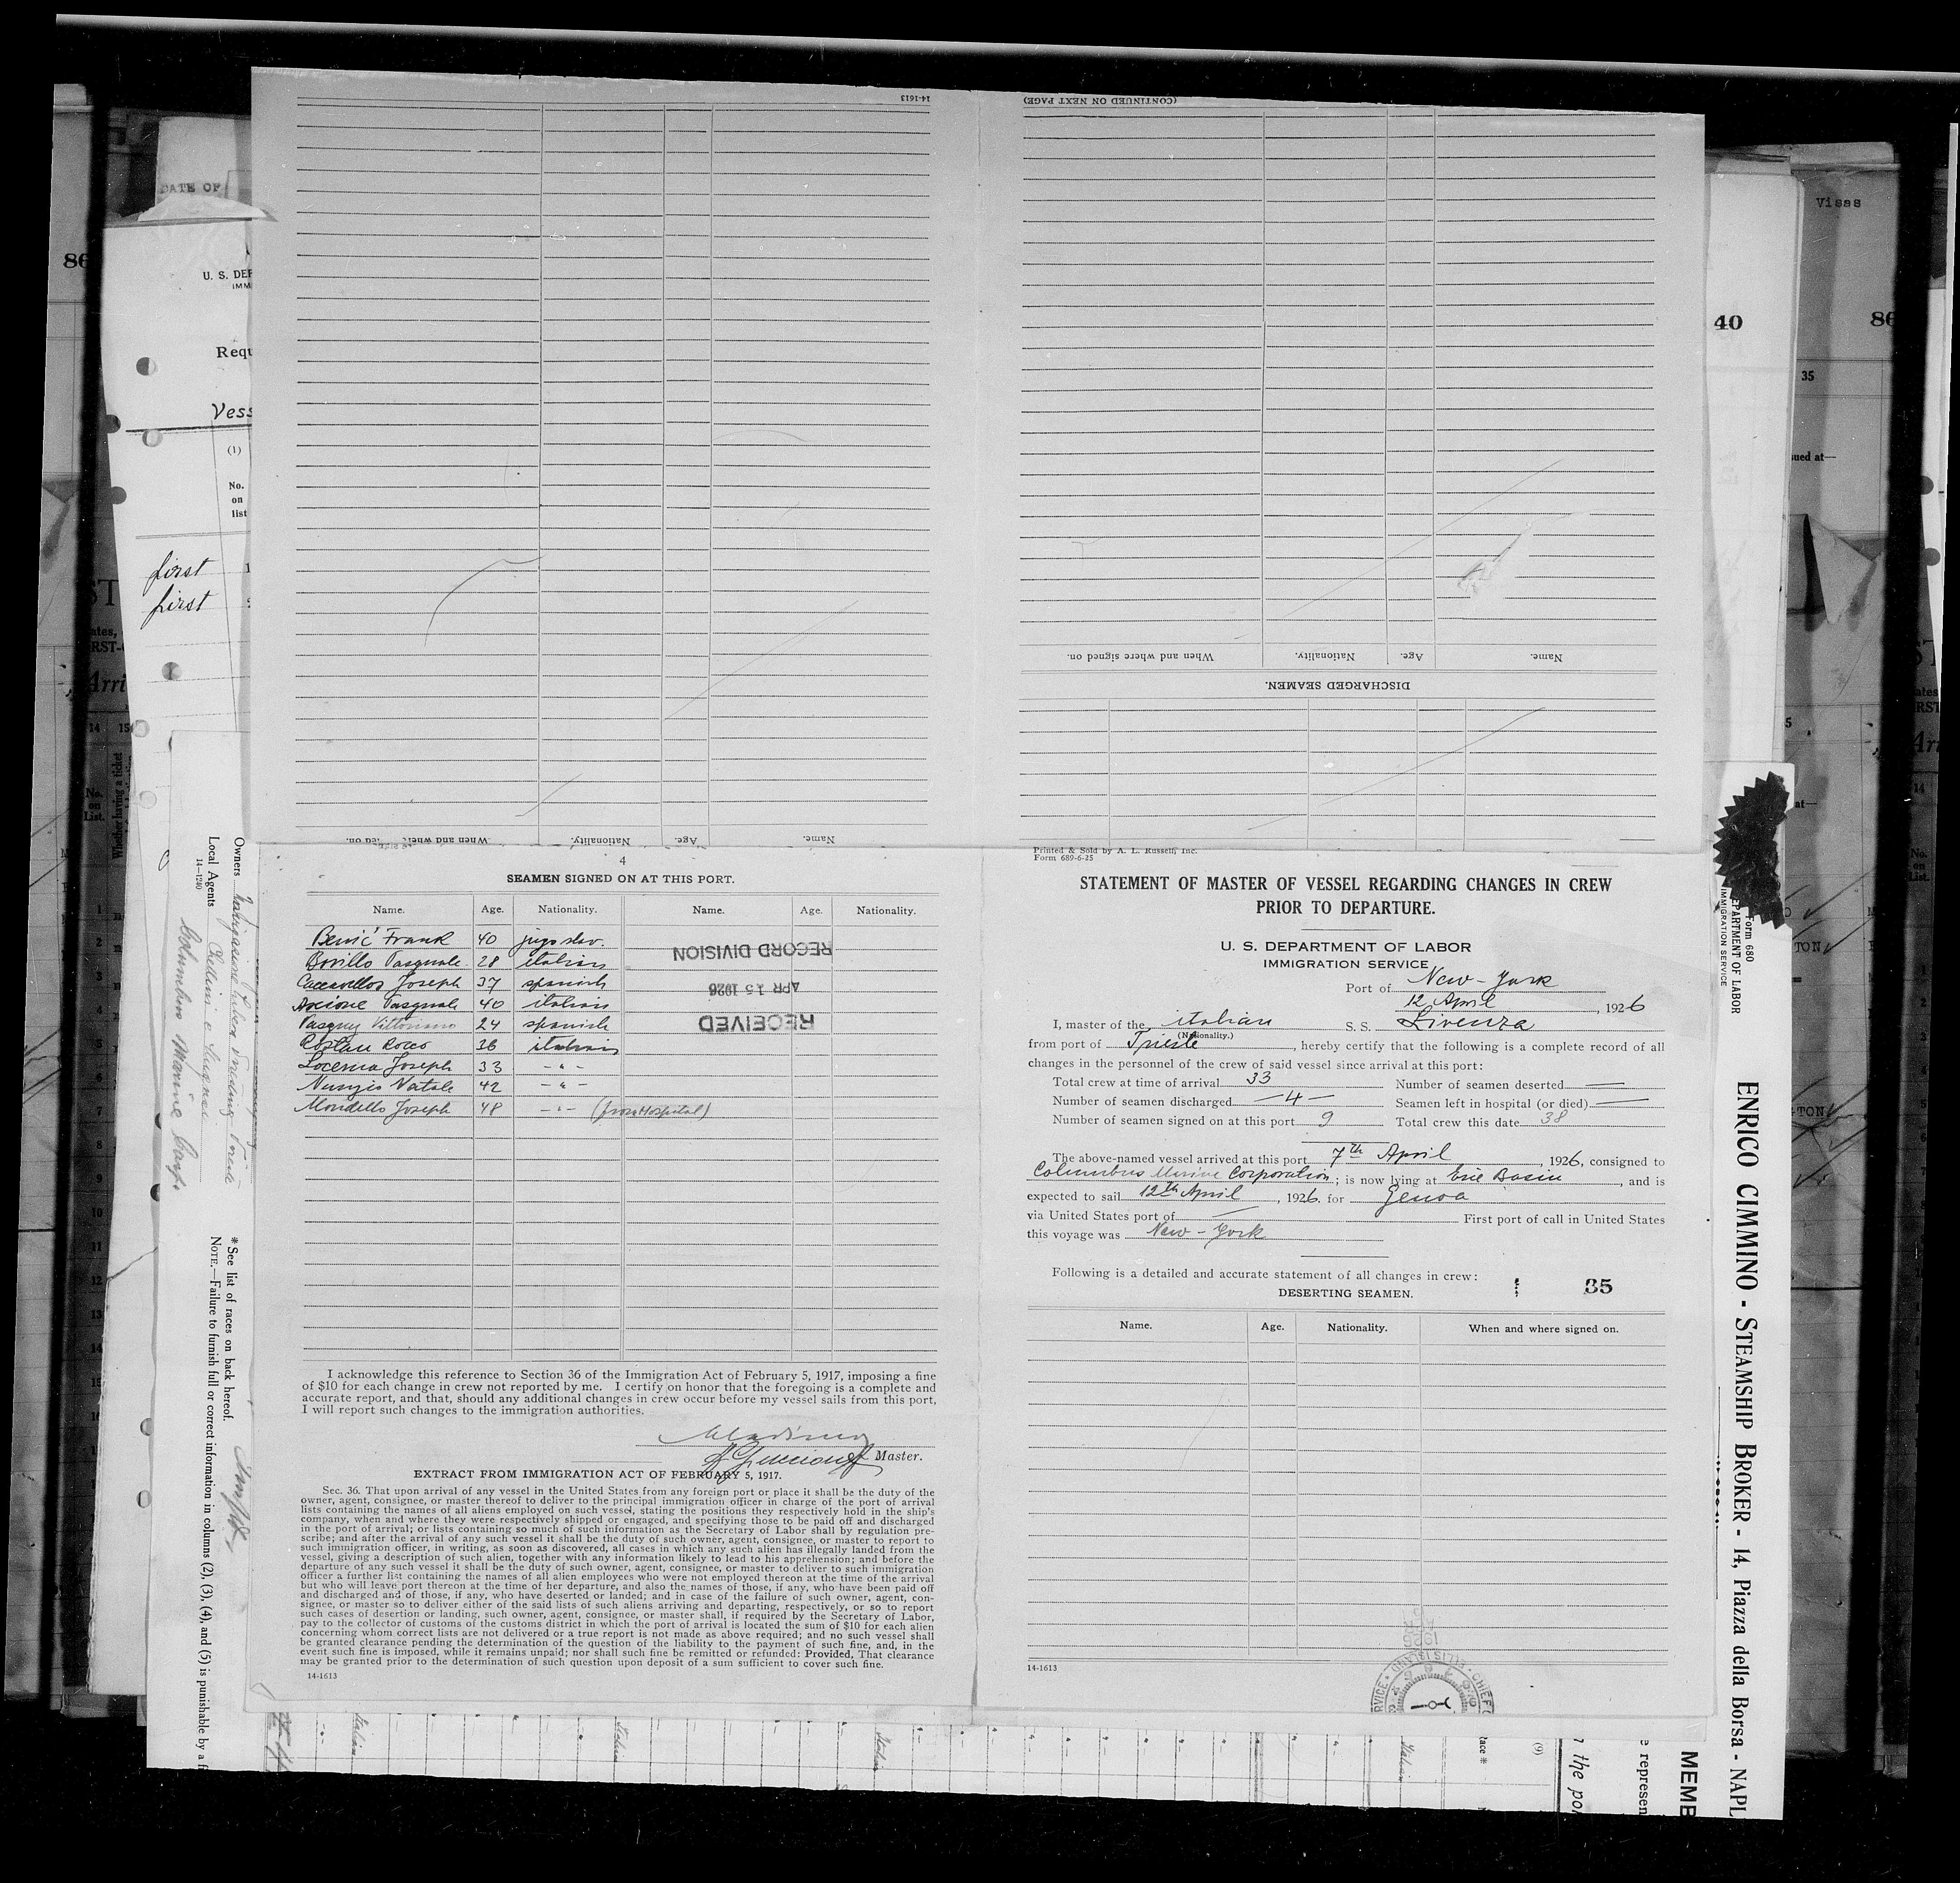 14-1613
(CONTINUED ON NEXT PAGE)
DATE OF
Visas
86
U. S. DEP
IMM
Requ
Vess
(1)
No.
on
list
first
first
40
86
35
sued at—
When and where signed on. Nationality. Age. Name.
DISCHARGED SEAMEN.
Name. Age. Nationality. When and where signed on.
4
SEAMEN SIGNED ON AT THIS PORT.
Name. Age. Nationality. Name. Age. Nationality.
Benić Frank 40 jugoslav.
Borillo Pasquale 28 italian
Caccavellos Joseph 37 spanish
Ascione Pasquale 40 italian
Pasquy Vittoriano 24 spanish
Rocco 36 italian
Locema Joseph 33 - " -
Nunzio Natale 42 - " -
Mondello Joseph 48 - " - (from Hospital)
RECORD DIVISION
APR 15 1926
RECEIVED
I acknowledge this reference to Section 36 of the Immigration Act of February 5, 1917, imposing a fine
of $10 for each change in crew not reported by me. I certify on honor that the foregoing is a complete and
accurate report, and that, should any additional changes in crew occur before my vessel sails from this port,
I will report such changes to the immigration authorities.
Master.
EXTRACT FROM IMMIGRATION ACT OF FEBRUARY 5, 1917.
Sec. 36. That upon arrival of any vessel in the United States from any foreign port or place it shall be the duty of the
owner, agent, consignee, or master thereof to deliver to the principal immigration officer in charge of the port of arrival
lists containing the names of all aliens employed on such vessel, stating the positions they respectively hold in the ship's
company, when and where they were respectively shipped or engaged, and specifying those to be paid off and discharged
in the port of arrival; or lists containing so much of such information as the Secretary of Labor shall by regulation pre-
scribe; and after the arrival of any such vessel it shall be the duty of such owner, agent, consignee, or master to report to
such immigration officer, in writing, as soon as discovered, all cases in which any such alien has illegally landed from the
vessel, giving a description of such alien, together with any information likely to lead to his apprehension; and before the
departure of any such vessel it shall be the duty of such owner, agent, consignee, or master to deliver to such immigration
officer a further list containing the names of all alien employees who were not employed thereon at the time of the arrival
but who will leave port thereon at the time of her departure, and also the names of those, if any, who have been paid off
and discharged and of those, if any, who have deserted or landed; and in case of the failure of such owner, agent, con-
signee, or master so to deliver either of the said lists of such aliens arriving and departing, respectively, or so to report
such cases of desertion or landing, such owner, agent, consignee, or master shall, if required by the Secretary of Labor,
pay to the collector of customs of the customs district in which the port of arrival is located the sum of $10 for each alien
concerning whom correct lists are not delivered or a true report is not made as above required; and no such vessel shall
be granted clearance pending the determination of the question of the liability to the payment of such fine, and, in the
event such fine is imposed, while it remains unpaid; nor shall such fine be remitted or refunded: Provided, That clearance
may be granted prior to the determination of such question upon deposit of a sum sufficient to cover such fine.
14-1613
Printed & Sold by A. L. Russell, Inc.
Form 689-6-25
STATEMENT OF MASTER OF VESSEL REGARDING CHANGES IN CREW
PRIOR TO DEPARTURE.
U. S. DEPARTMENT OF LABOR
IMMIGRATION SERVICE
Port of New-York
12 April, 1926
I, master of the italian S. S. Livenza
(Nationality.)
from port of Trieste, hereby certify that the following is a complete record of all
changes in the personnel of the crew of said vessel since arrival at this port:
Total crew at time of arrival 33 Number of seamen deserted —
Number of seamen discharged —4— Seamen left in hospital (or died) —
Number of seamen signed on at this port 9 Total crew this date 38
The above-named vessel arrived at this port 7th April, 1926, consigned to
Columbus Marine Corporation; is now lying at Erie Basin, and is
expected to sail 12th April, 1926. for Genoa
via United States port of — First port of call in United States
this voyage was New-York
Following is a detailed and accurate statement of all changes in crew:
35
DESERTING SEAMEN.
Name. Age. Nationality. When and where signed on.
14-1613
1926
ELLIS ISLAND
CHIEF
Owners
Local Agents
14-1240
Columbus Marine Corp.
* See list of races on back hereof.
NOTE.—Failure to furnish full or correct information in columns (2), (3), (4), and (5) is punishable by a f
Form 680
DEPARTMENT OF LABOR
IMMIGRATION SERVICE
ENRICO CIMMINO - STEAMSHIP BROKER - 14, Piazza della Borsa - NAPL
MEMB
e represen
n the por
(9)
Italian
Italian
Italian
Italian